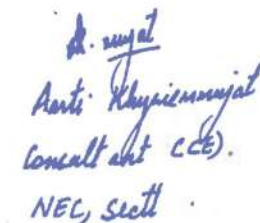 A. mujat
Aarti Khyriemmujat
Consultant (CE).
NEC, Sectt.